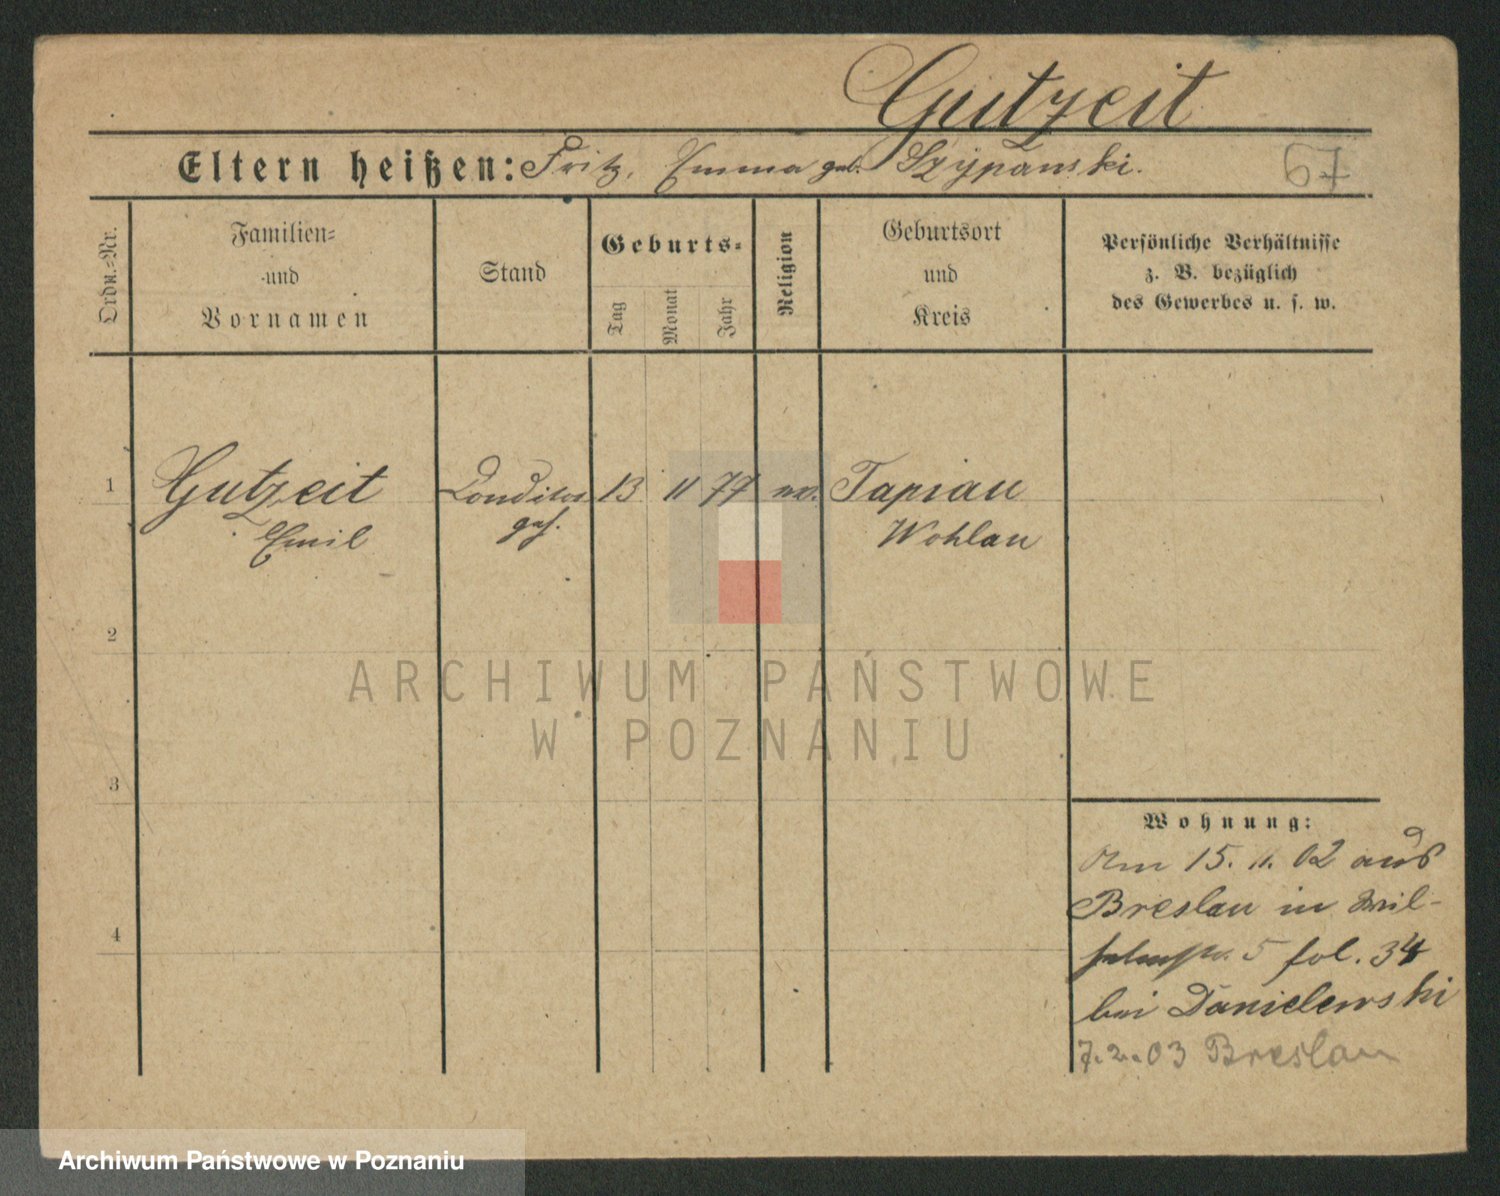 Gutzeit
Eltern heißen: Fritz, Emma geb. Szypanski.
67
Ordn.-Nr.
Familien-
und
Vornamen
Stand
Geburts-
Tag
Monat
Jahr
Religion
Geburtsort
und
Kreis
Persönliche Verhältnisse
z. B. bezüglich
des Gewerbes u. s. w.
1 Gutzeit Conditor 13 11 77 ev. Tapiau
Emil geh. Wohlau
2
3
4
ARCHIWUM PAŃSTWOWE
W POZNANIU
Wohnung:
Am 15. 11. 02 aus
Breslau in Wil-
helmstr. 5 fol. 34
bei Danielewski
7. 2. 03 Breslau
Archiwum Państwowe w Poznaniu